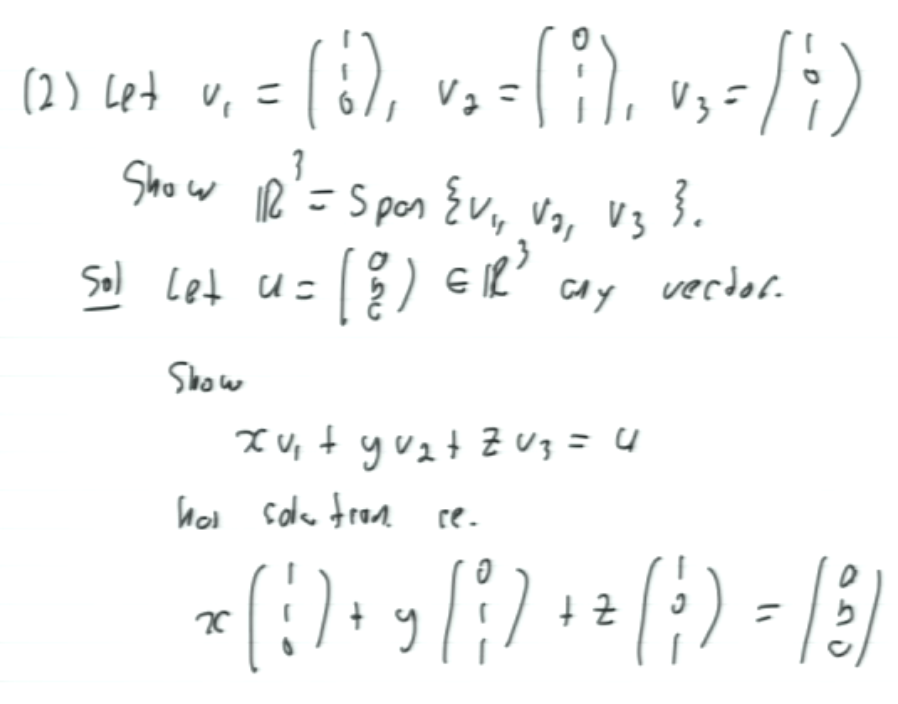 (2) Let v₁ = (1 1 0), v₂ = (0 1 1), v₃ = (1 0 1)
Show ℝ³ = Span {v₁, v₂, v₃}.
Sol Let u = (a b c) ∈ ℝ³ any vector.
Show
x v₁ + y v₂ + z v₃ = u
has solution ie.
x (1 1 0) + y (0 1 1) + z (1 0 1) = (a b c)